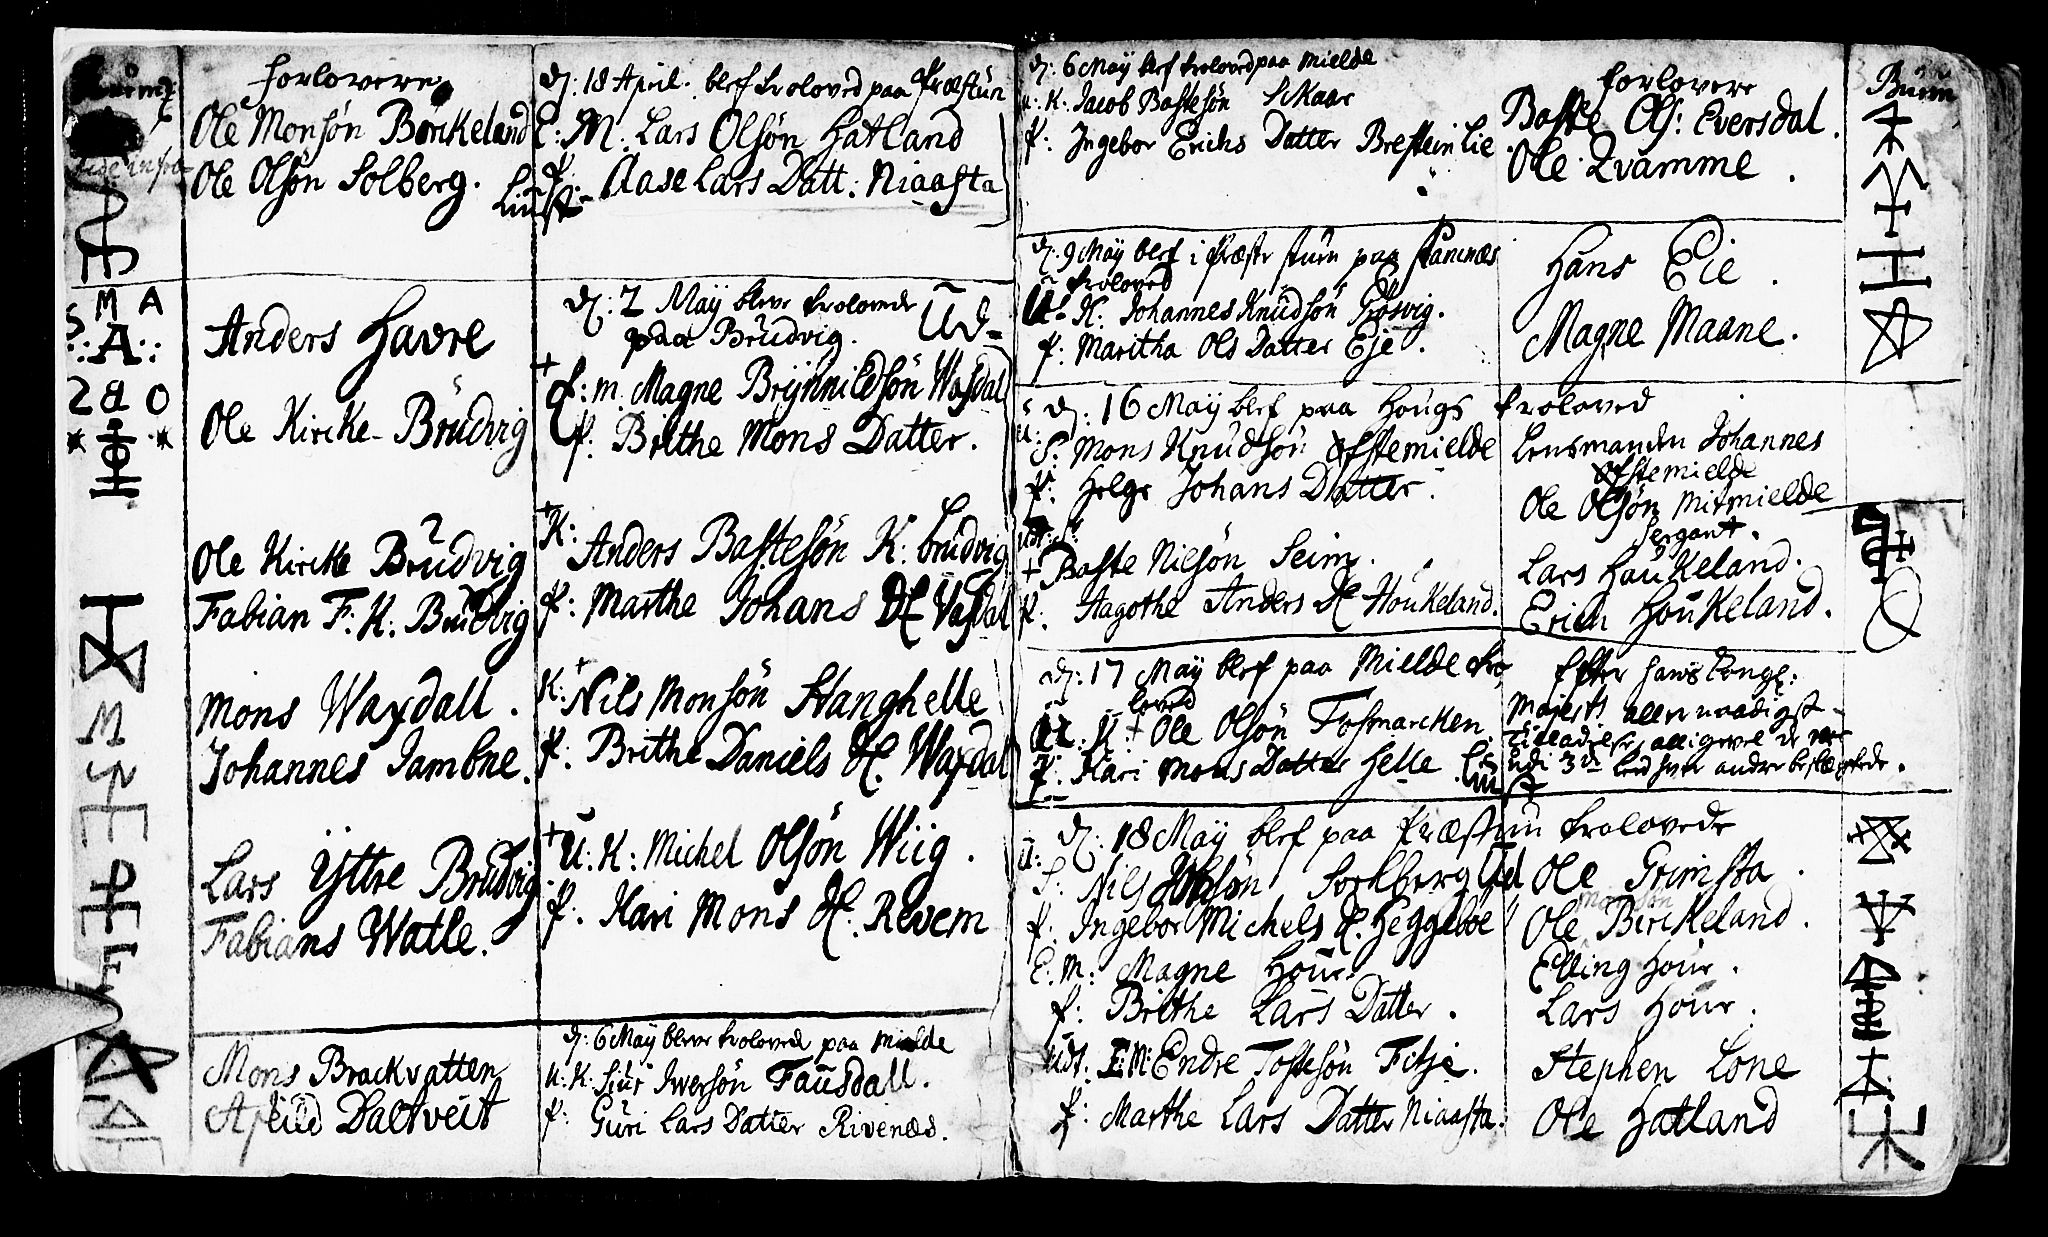 forlovere
Ole Monsön Börckeland
Ole Olsön Solberg.
Anders Havre
Ole Kircke-Brüdvig
Ole Kircke Brüdvig
Fabian F: K: Brüdvig
Mons Waxdall.
Johannes Jambne.
Lars Yttre Brüdvig
Fabians Watle.
Mons Brackvatten
Daltveit
S M A
A
2 a o
d: 18 April. blef troloved paa Præstün
E: M. Lars Olsön Hatland
f: Aase Lars Datt: Niaasta
d: 2 Maÿ bleve trolovede
paa Brüdvig. Ud-
f: m. Magne Brÿnnildsön Waxdal
f: Brithe Mons Datter.
K: Anders Bastesön K: brüdvig
f: Marthe Johans D. Waxdal
K: Nils Monsön Stanghelle
f: Brithe Daniels D. Waxdal
ü: K: Michel Olsön Wiig.
f: Kari Mons D. Revem
d: 6 Maÿ bleve troloved paa Mielde
u: K: Siur Iwersön Faüsdall.
f: Güri Lars Datter Rivenæs.
d: 6 Maÿ blef troloved paa Mielde
u: K: Jacob Bastesön Skaar
f: Ingebor Erichs Datter Brestein Lie
d: 9 Maÿ blef i Præste stuen paa Hamnæs
troloved
U: K: Johannes Knüdsön Trösvig.
f: Maritha Ols Datter Eje.
d: 16 Maÿ blef paa Hougs troloved
S: Mons Knüdsön Ofstemielde
f: Helge Johans Datter.
Baste Nilsön Seim.
f: Aagothe Anders D. Houkeland.
d: 17 Maÿ blef paa Mielde tro
loved
K: Ole Olsön Fosmarcken.
f: Kari Mons Datter Helle
d: 18 Maÿ blef paa Præstün trolovede
S: Nils Sörhberg Ud
f: Ingebor Michels D. Heggeböe
E: M: Magne Hour.
f: Brithe Lars Datter.
udt. E: M: Endre Tostesön Fitje.
f: Marthe Lars Datter Niaasta.
forlovere
Baste Ols: Eversdal.
Ole Qvamme.
Hans Eie.
Magne Maane.
Lensmanden Johannes
Ofstemielde
Ole Olsön Mitmielde
Sergant.
Lars Haükeland.
Erich Houkeland.
Efter Hans Kongl:
Majests allernaadigst
Ole Grimsta.
Ole Birckeland.
Elling Hour.
Lars Hour.
Stephen Lone
Ole Hatland